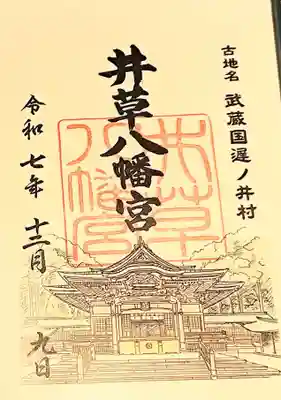 古地名 武蔵国遅ノ井村
井草八幡宮
井草
八幡宮
令和七年 十二月 九日